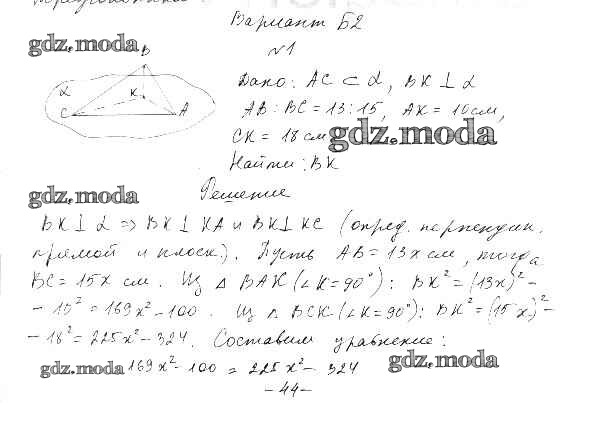 Вариант Б2
gdz.moda
№1
B
α
K
C
A
Дано: AC ⊂ α, BK ⊥ α
AB : BC = 13 : 15, AK = 10 см,
CK = 18 см
gdz.moda
Найти: BK
gdz.moda
Решение
BK ⊥ α ⇒ BK ⊥ KA и BK ⊥ KC (опред. перпендик.
прямой и плоск.). Пусть AB = 13x см, тогда
BC = 15x см. Из △ BAK (∠K = 90°): BK² = (13x)² -
- 10² = 169x² - 100. Из △ BCK (∠K = 90°): BK² = (15x)² -
- 18² = 225x² - 324. Составим уравнение:
gdz.moda 169x² - 100 = 225x² - 324 gdz.moda
- 44 -